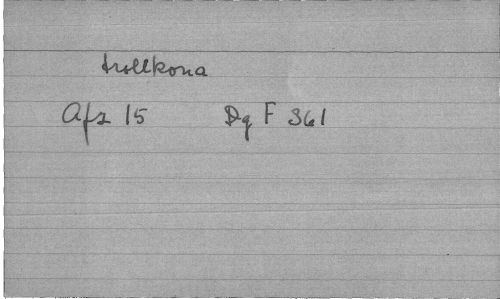 trollkona
Afz 15 Dg F 361